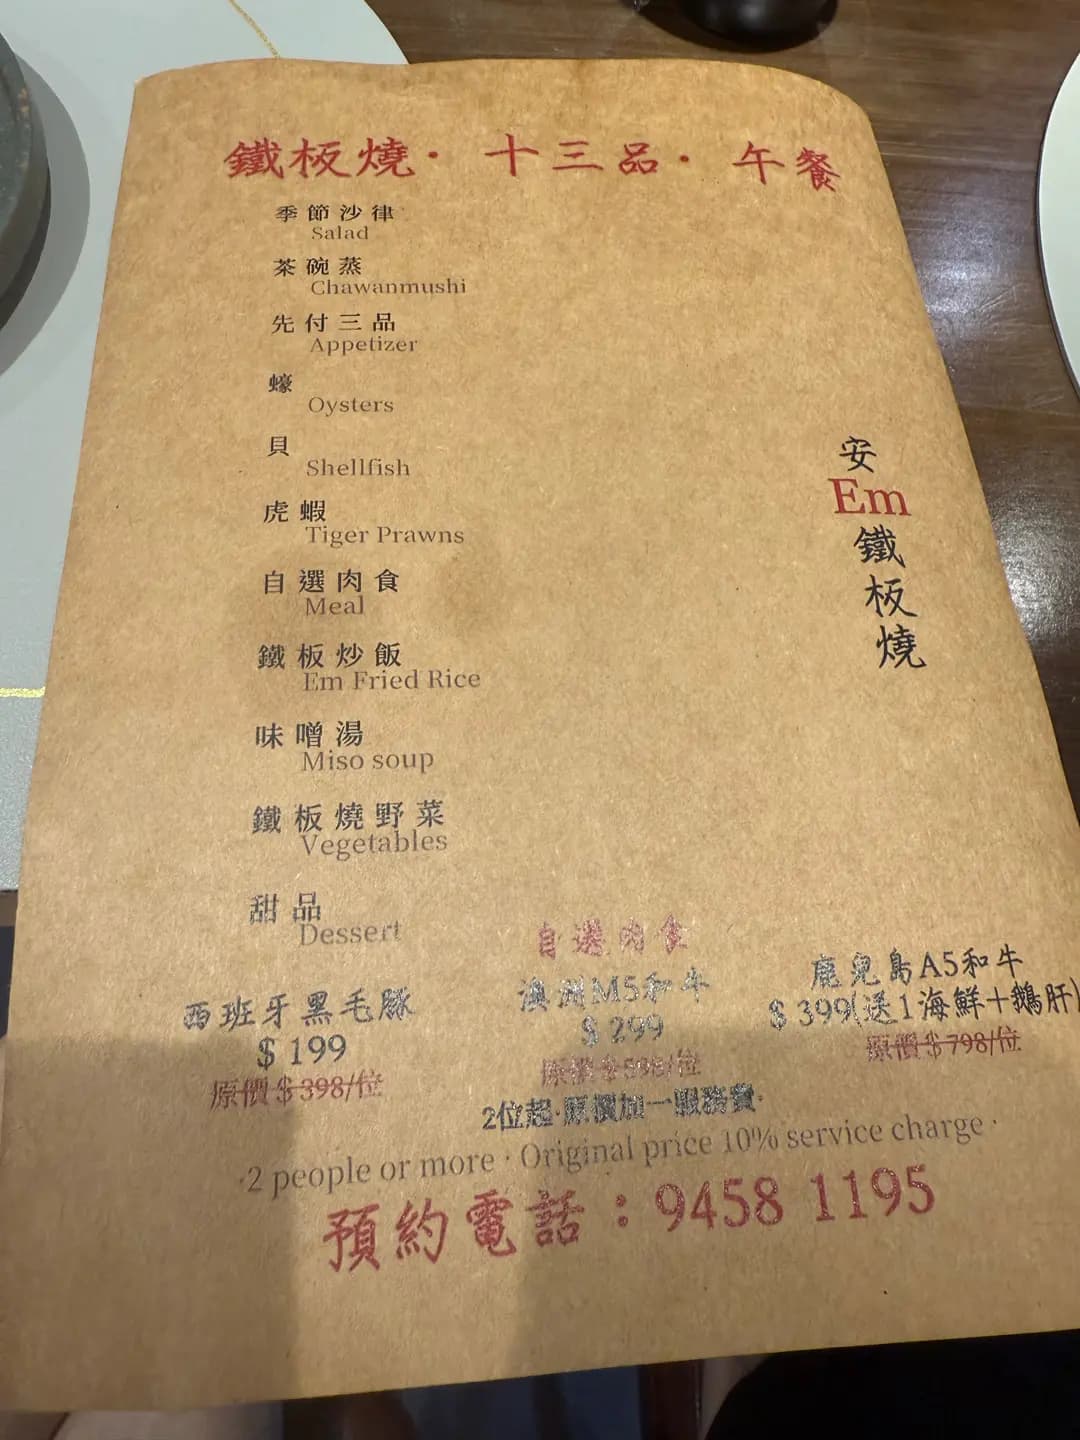 鐵板燒·十三品·午餐
季節沙律
Salad
茶碗蒸
Chawanmushi
先付三品
Appetizer
蠔
Oysters
貝
Shellfish
虎蝦
Tiger Prawns
自選肉食
Meal
鐵板炒飯
Em Fried Rice
味噌湯
Miso soup
鐵板燒野菜
Vegetables
甜品
Dessert
安
Em
鐵
板
燒
自選肉食
西班牙黑毛豚
$199
原價$398/位
澳洲M5和牛
$299
原價$598/位
鹿兒島A5和牛
$399(送1海鮮+鵝肝)
原價$798/位
2位起·原價加一服務費·
·2 people or more · Original price 10% service charge ·
預約電話：9458 1195